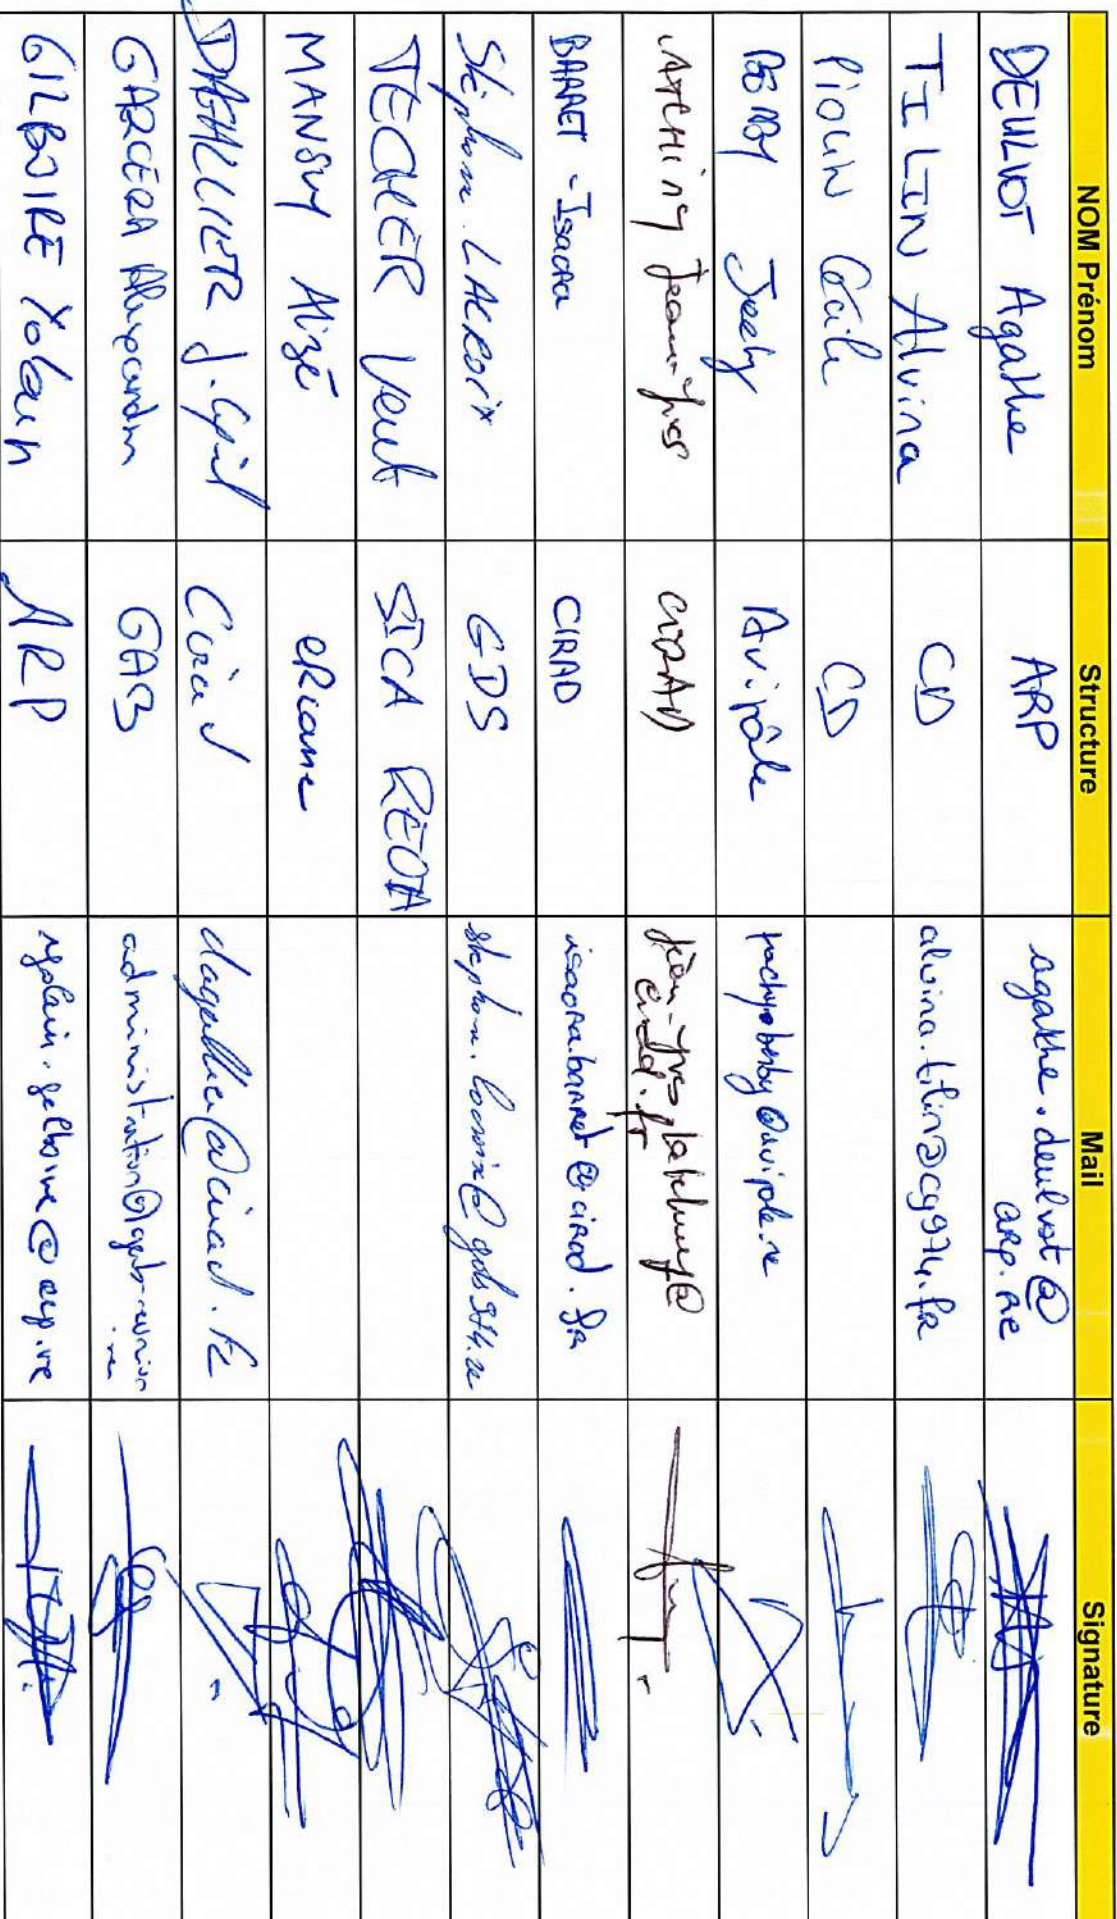 NOM Prénom Structure Mail Signature
DEULVOT Agathe ARP agathe.deulvot@
arp.re
TILIN Alvina CD alvina.tilin@cg974.fr
Piouin Cécile CD
Jeely Avipole
Jean-Yves CIRAD
cirad.fr
BARRET - Isaora CIRAD isaora.barret@cirad.fr
Stéphane LACROIX GDS stephane.lacroix@gds974.re
TECHER SICA REOA
MANSUY Alizé eRcane
DAGALLIER J. Cyril Cirad dagallier@cirad.fr
GARCERA GAB administration@gab-reunion
.re
GILBOIRE Yolain ARP